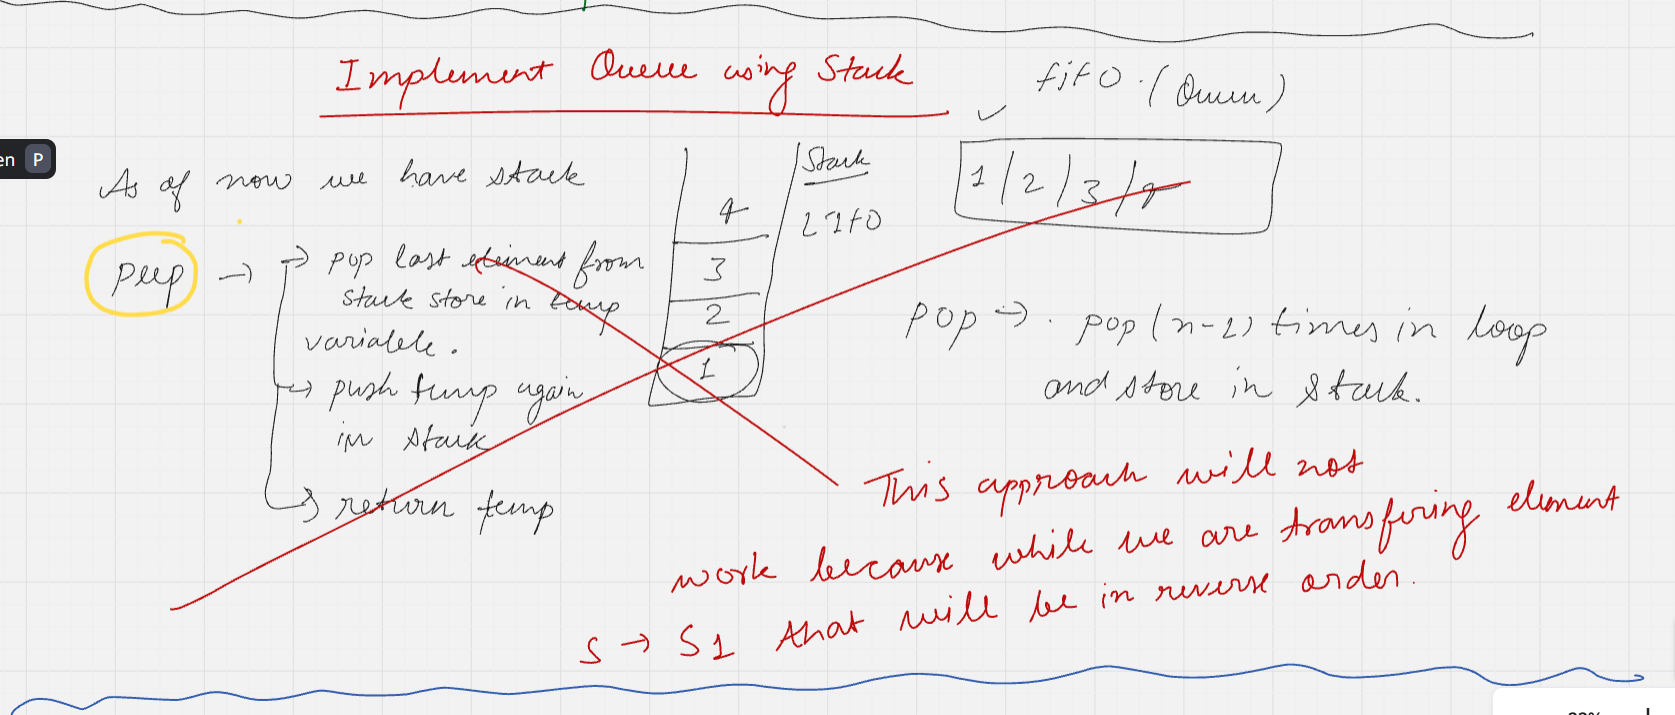 Implement Queue using Stack
FIFO. (Queue)
en P
As of now we have stack
Stack
LIFO
1/2/3/4
4
3
2
1
peep → → pop last element from
stack store in temp
variable.
→ push temp again
in stack
→ return temp
pop → . pop (n-1) times in loop
and store in stack.
This approach will not
work because while we are transfiring element
S → S1 that will be in reverse order.